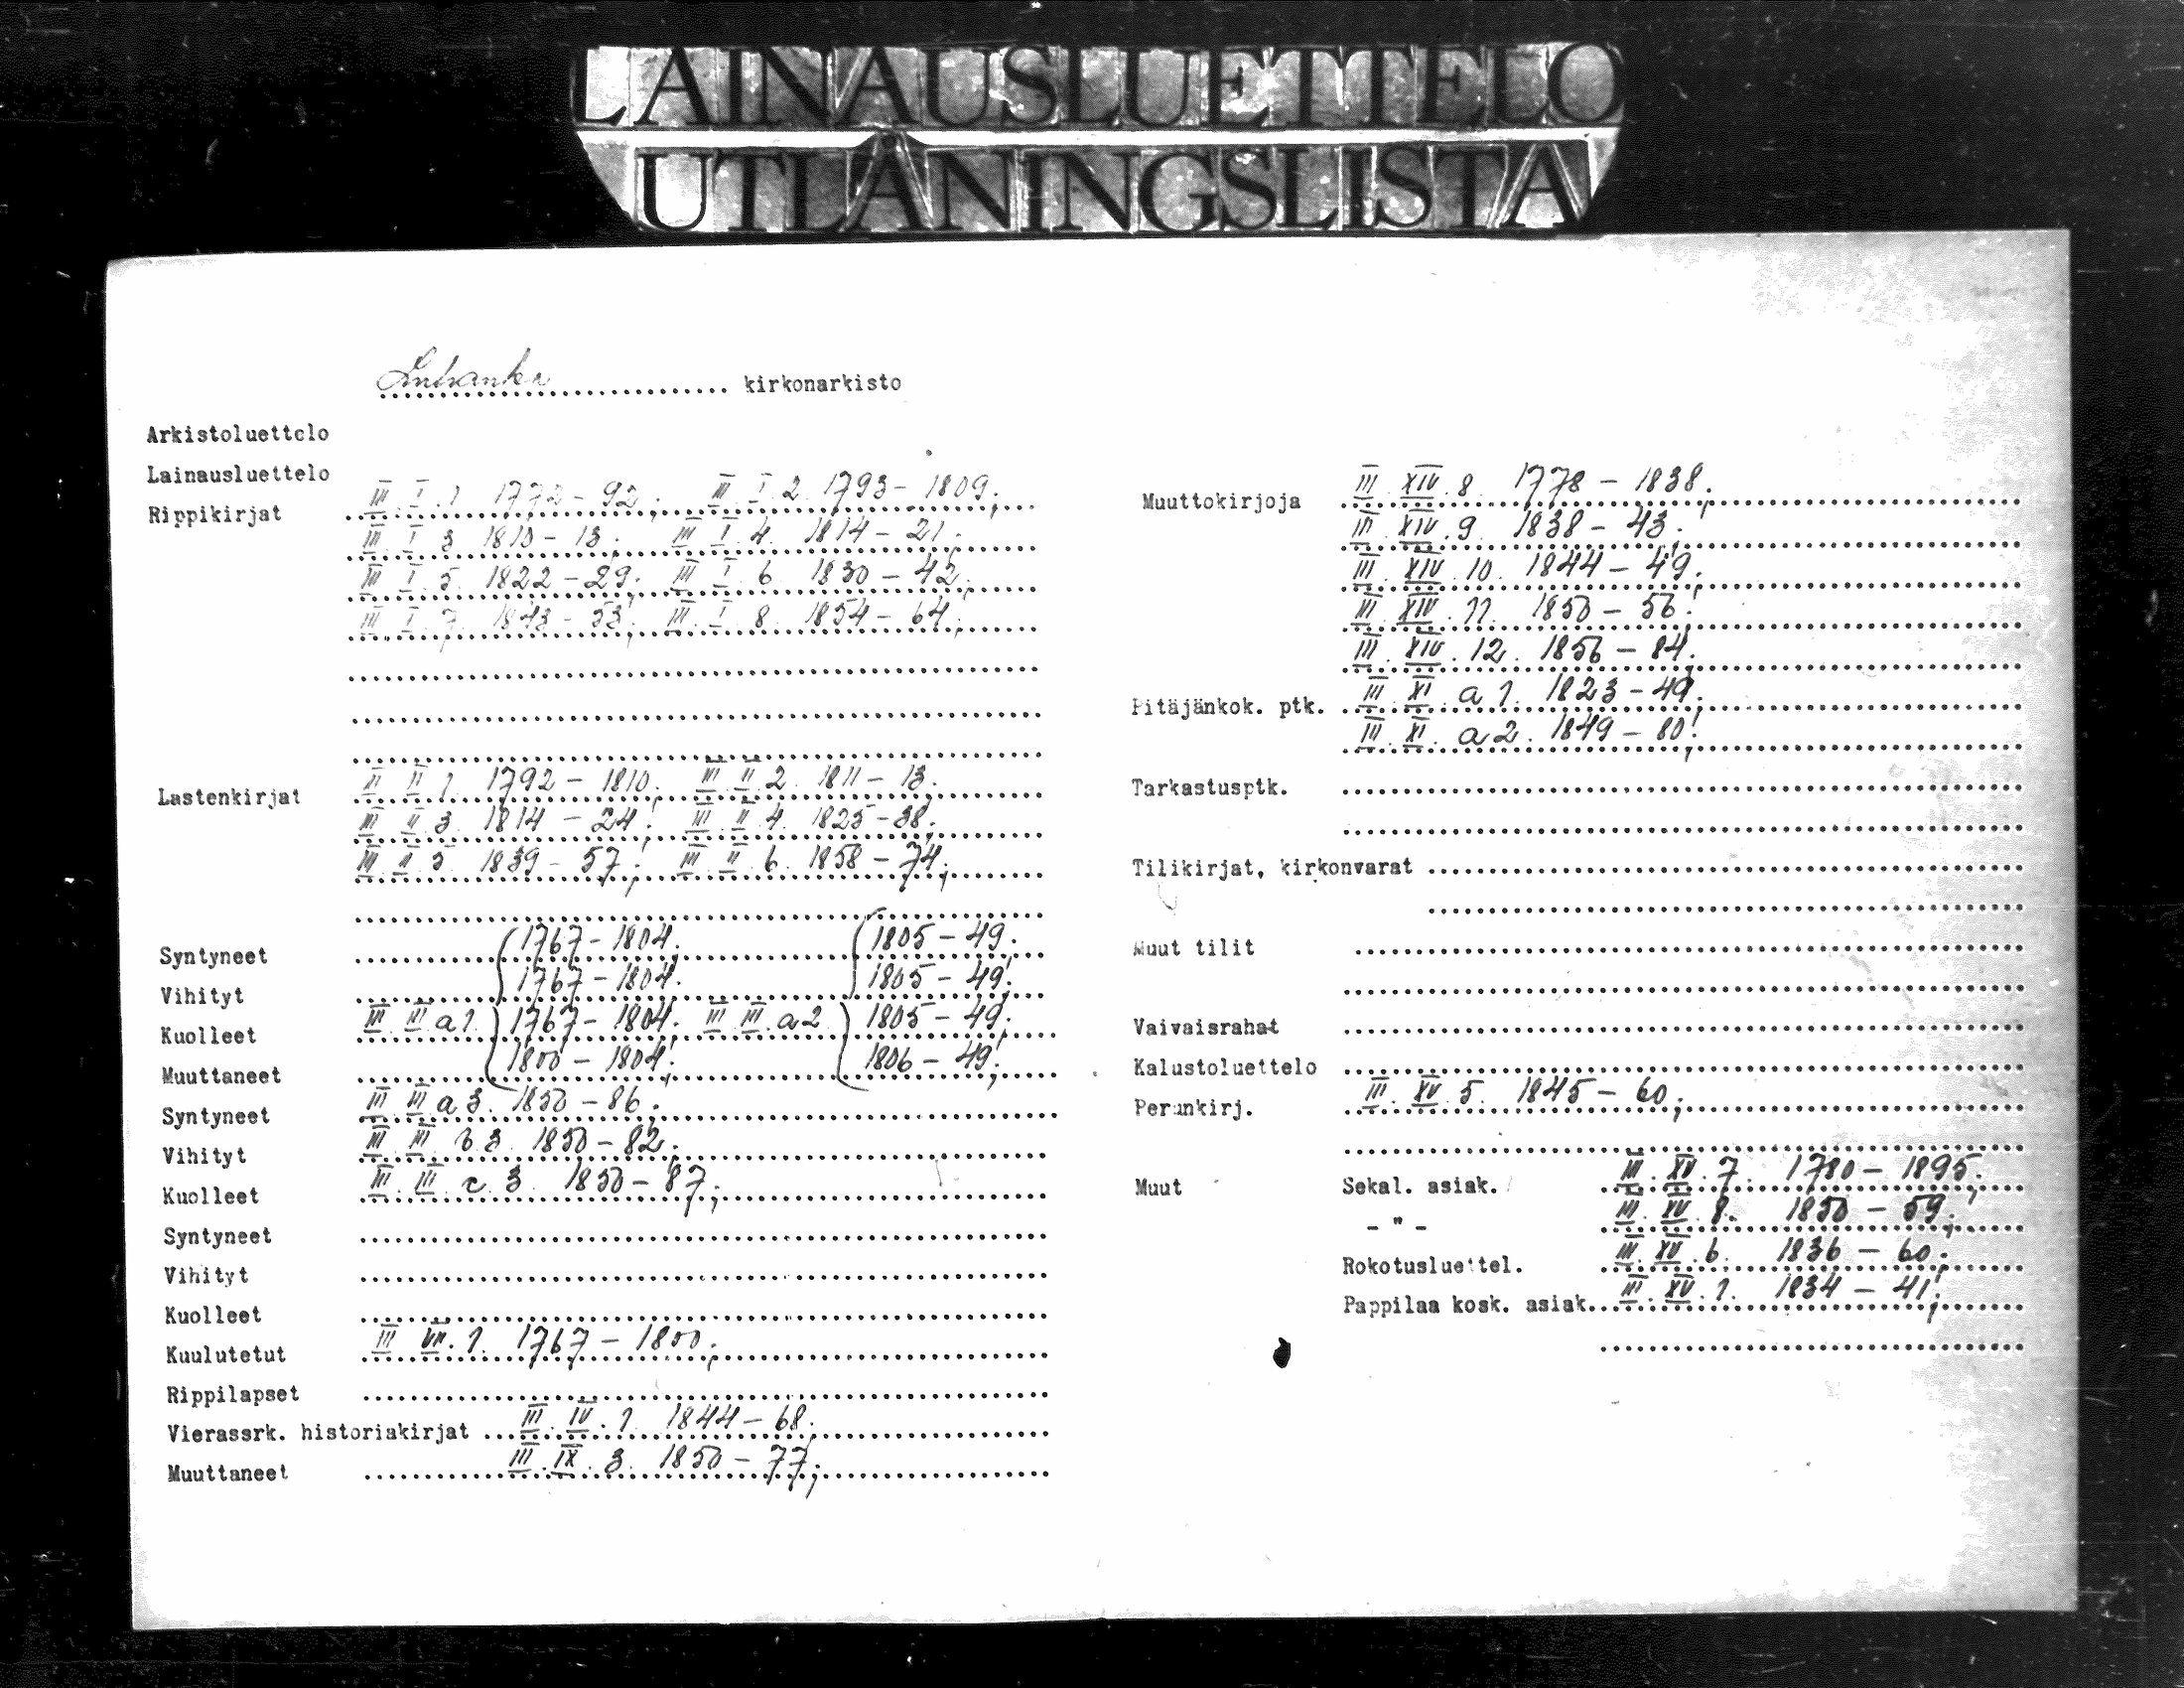 LAINAUSLUETTELO
UTLÅNINGSLISTA
Luhanka kirkonarkisto
Arkistoluettelo
Lainausluettelo
Rippikirjat III. I. 1. 1772-92; III. I. 2. 1793-1809;
III. I. 3. 1810-13; III. I. 4. 1814-21;
III. I. 5. 1822-29; III. I. 6. 1830-42;
III. I. 7. 1843-53; III. I. 8. 1854-64;
Lastenkirjat II. II. 1. 1792-1810; III. II. 2. 1811-13;
III. II. 3. 1814-24; III. II. 4. 1825-38;
III. II. 5. 1839-57; III. II. 6. 1858-74;
Syntyneet 1767-1804; 1805-49;
Vihityt 1767-1804; 1805-49;
Kuolleet III. III. a1. 1767-1804; III. III. a2. 1805-49;
Muuttaneet 1800-1804; 1806-49;
Syntyneet III. III. a 3. 1850-86;
Vihityt III. III. b 3. 1850-82;
Kuolleet III. III. c. 3. 1850-87;
Syntyneet
Vihityt
Kuolleet
Kuulutetut III. VII. 1. 1767-1800;
Rippilapset
Vierassrk. historiakirjat III. IV. 1. 1844-68;
Muuttaneet III. IX. 3. 1850-77;
Muuttokirjoja III. XIV. 8. 1778-1838;
III. XIV. 9. 1838-43;
III. XIV. 10. 1844-49;
III. XIV. 11. 1850-56;
III. XIV. 12. 1856-84;
Pitäjänkok. ptk. III. XI. a 1. 1823-49;
III. XI. a 2. 1849-80;
Tarkastusptk.
Tilikirjat, kirkonvarat
Muut tilit
Vaivaisrahat
Kalustoluettelo
Perunkirj. III. XV. 5. 1845-60;
Muut Sekal. asiak. III. XV. 7. 1780-1895;
- " - III. XV. 8. 1850-59;
Rokotusluettel. III. XV. 6. 1836-60;
Pappilaa kosk. asiak. III. XV. 1. 1834-41;